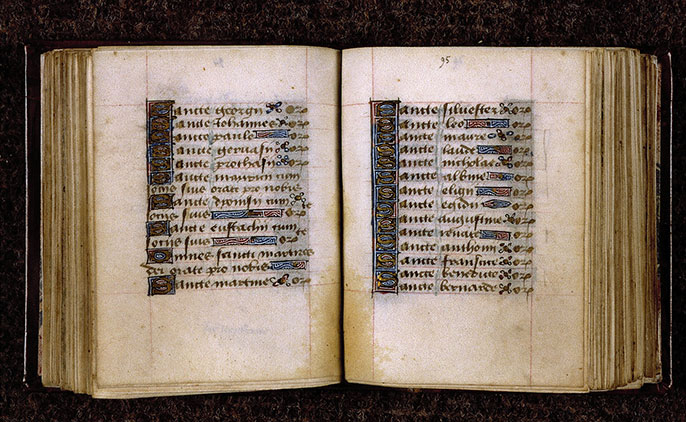 Sancte georgii or̄
Sancte Iohannes or̄
Sancte paule or̄
Sancte geruasii or̄
Sancte prothasii or̄
Sancte cum
sociis suis orate pro nobis
Sancte dionisi cum
sociis suis or̄
Sancte eustachi cum
sociis suis or̄
Omnes sancti martires
dei orate pro nobis
Sancte martine or̄
95
Sancte siluester or̄
Sancte leo or̄
Sancte maure or̄
Sancte laude or̄
Sancte nicholae or̄
Sancte albine or̄
Sancte eligii or̄
Sancte egidii or̄
Sancte augustine or̄
Sancte or̄
Sancte anthoni or̄
Sancte fransisce or̄
Sancte benedicte or̄
Sancte bernarde or̄